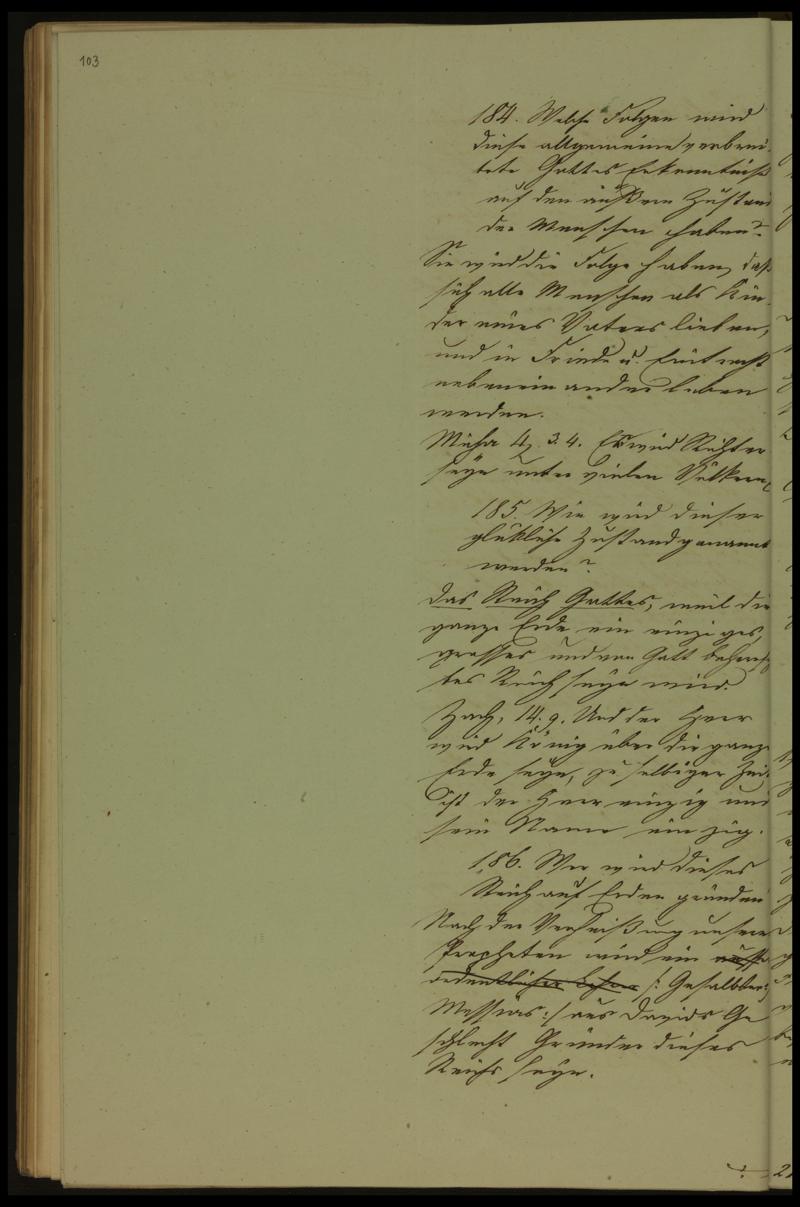 103
184. Welche Folgen wird
diese allgemeine verbrei-
tete Gottes Erkenntniß
auf den äußern Zustand
der Menschen haben?
Sie wird die Folge haben, daß
sich alle Menschen als Kin-
der eines Vaters lieben,
und in Friede u. Eintracht
nebeneinander leben
werden.
Micha 4, 3. 4. Er wird Richter
seyn unter vielen Völkern
185. Wie wird dieser
glückliche Zustand genannt
werden?
Das Reich Gottes, weil die
ganze Erde ein einziges,
grosses und von Gott beherrsch
tes Reich seyn wird.
Zach, 14. 9. Und der Herr
wird König über die ganze
Erde seyn, zu selbiger Zeit
ist der Herr einzig und
sein Name einzig.
186. Wer wird dieses
Reich auf Erden gründen
Nach der Verheißung unserer
Propheten wird ein ausser
ordentlicher Lehrer /: Gesalbter:
Messias :/ aus Davids Ge
schlecht Gründer dieses
Reichs seyn.